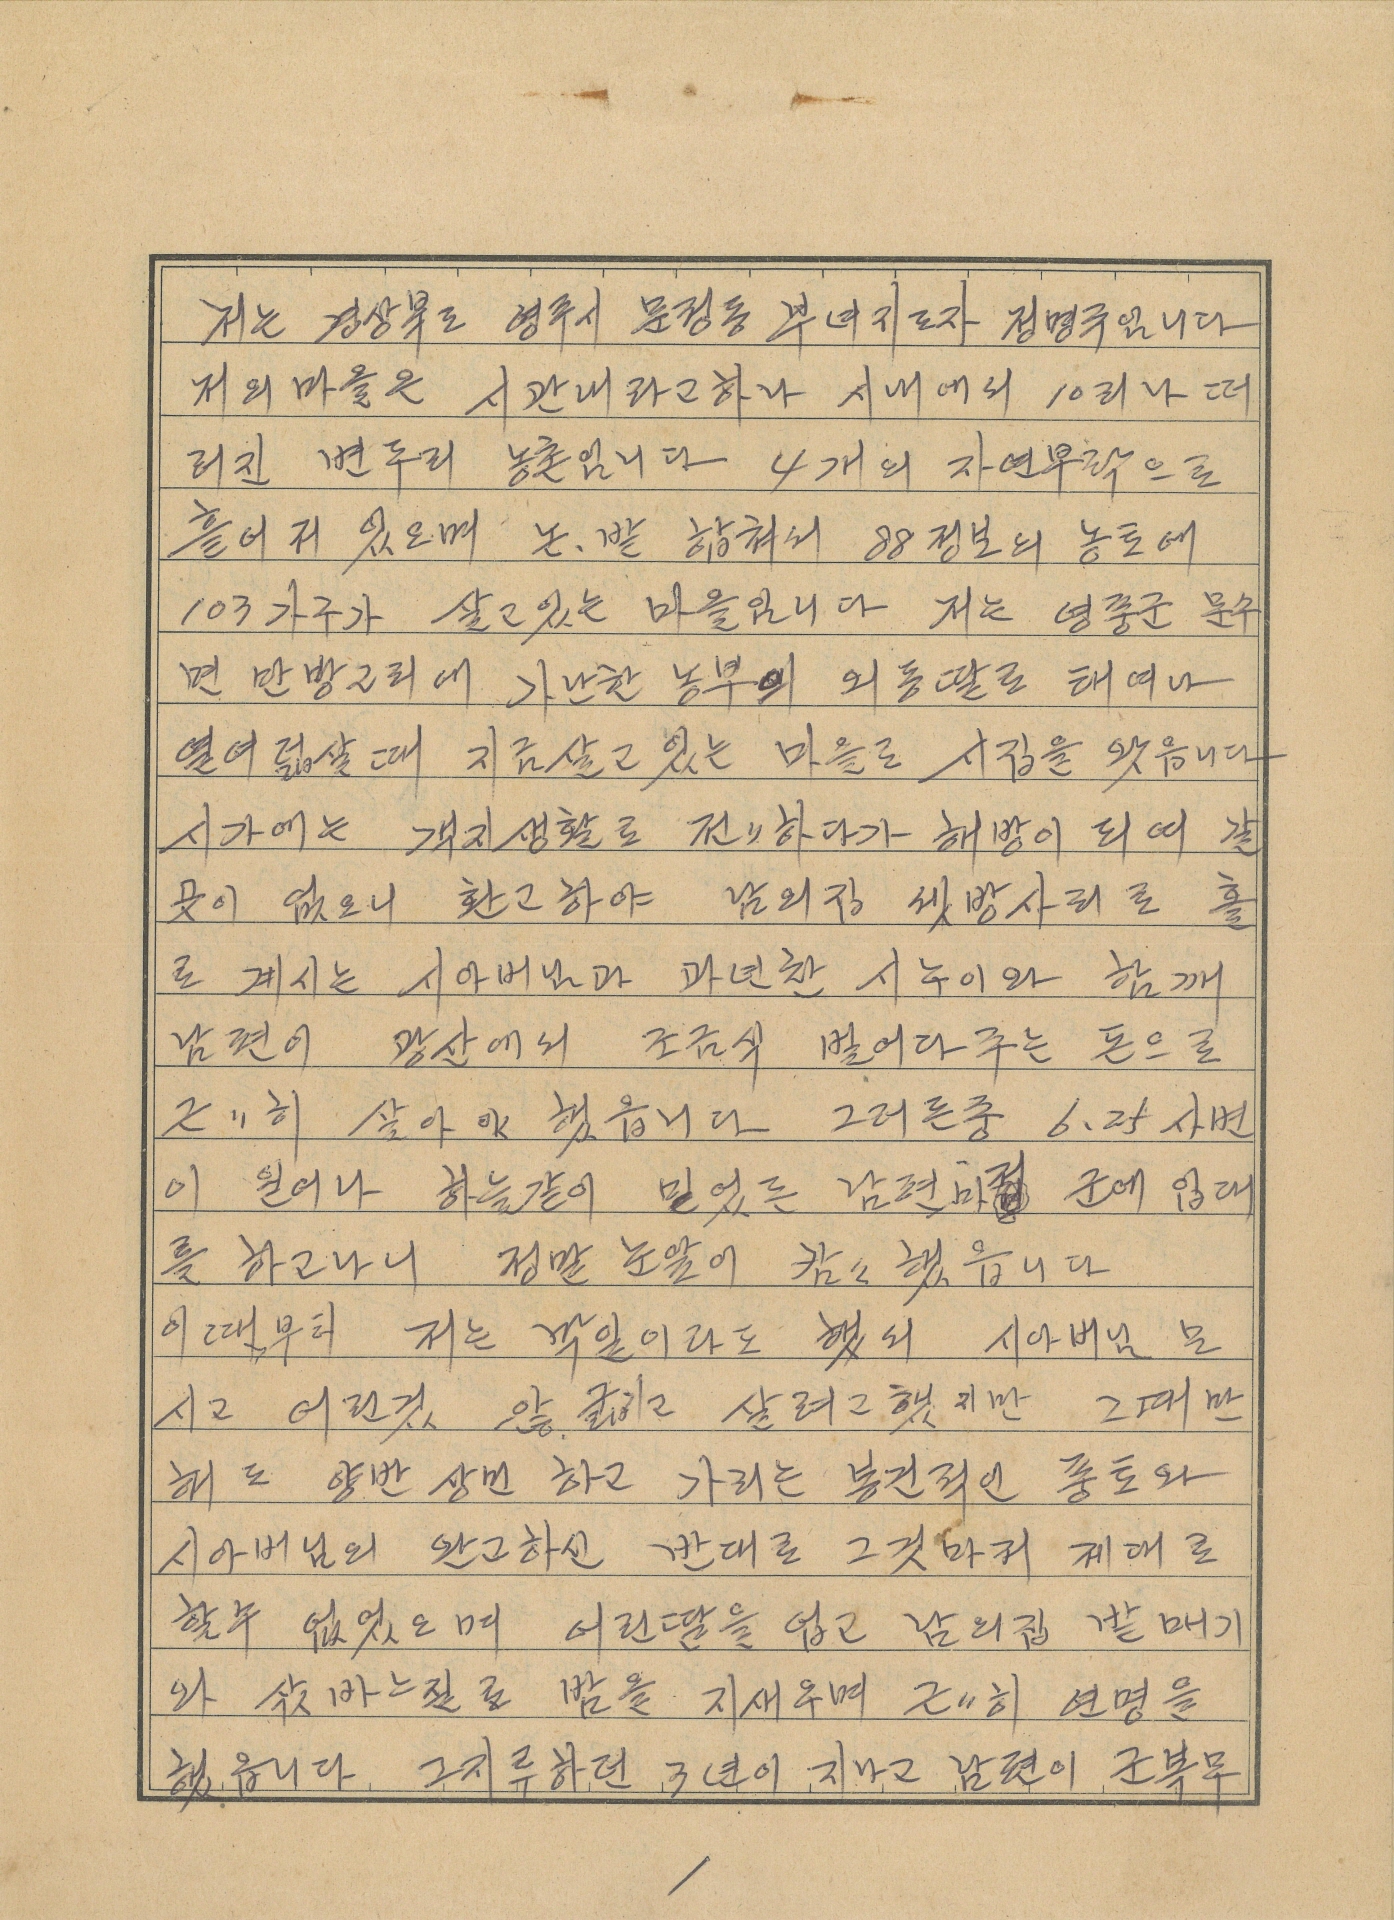 저는 경상북도 영주시 문정동 부녀지도자 정명주입니다
저의마을은 시관내라고하나 시내에서 10리나 떠
러진 변두리 농촌입니다 4개의 자연부락으로
흩어저 있으며 논、밭 합쳐서 88정보의 농토에
103가구가 살고있는 마을입니다 저는 영풍군 문수
면 만방고리에 가난한 농부의 외동딸로 태여나
열여덟살때 지금살고있는 마을로 시집을 왓읍니다
시가에는 객지생활로 전〃하다가 해방이 되여 갈
곳이 없으니 환고하야 남의집 셋방사리로 홀
로 계시는 시아버님과 과년한 시누이와 함께
남편이 광산에서 조금식 벌어다주는 돈으로
근〃히 살아야 했읍니다 그러든중 6.25 사변
이 일어나 하늘같이 믿었든 남편마저 군에 입대
를 하고나니 정말 눈앞이 캄〃했읍니다
이때부터 저는 막일이라도 했서 시아버님 모
시고 어린것 않굶기고 살려고했지만 그때만
해도 양반 상민 하고 가리는 봉건적인 풍토와
시아버님의 완고하신 반대로 그것마저 제대로
할수 없었으며 어린딸을 업고 남의집 밭매기
와 삯바느질로 밤을 지새우며 근〃히 연명을
했읍니다 그지루하던 3년이 지나고 남편이 군복무
1